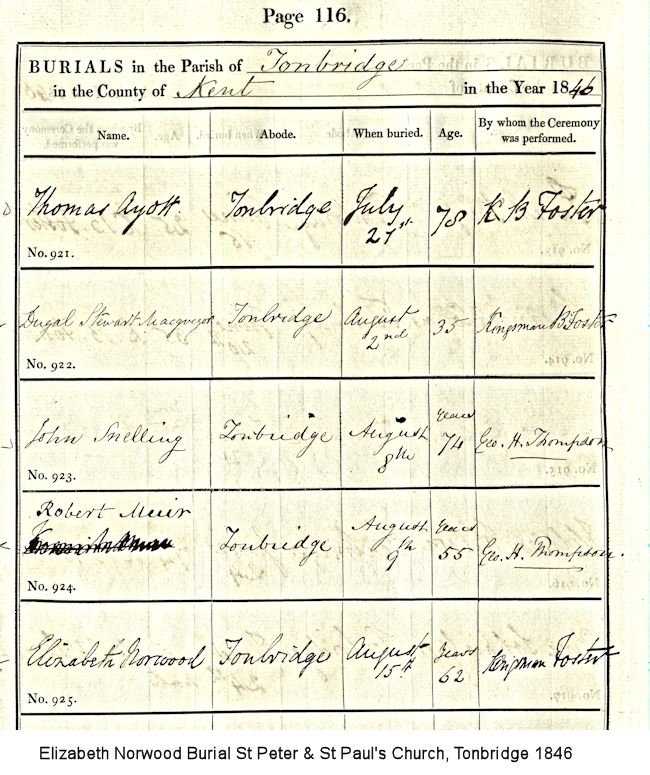 Page 116.
BURIALS in the Parish of Tonbridge
in the County of Kent in the Year 1846
Name. Abode. When buried. Age. By whom the Ceremony was performed.
Thomas Ayott Tonbridge July 27st 78 K B Foster
No. 921.
Dugal Stewart Macgregor Tonbridge August 2nd 35 Kingsman B Foster
No. 922.
John Snelling Tonbridge August 8th Years 74 Geo. H. Thompson
No. 923.
Robert Muir
Tonbridge August 9th Years 55 Geo. H. Thompson.
No. 924.
Elizabeth Norwood Tonbridge August 15th Years 62 Kingsman Foster
No. 925.
Elizabeth Norwood Burial St Peter & St Paul's Church, Tonbridge 1846